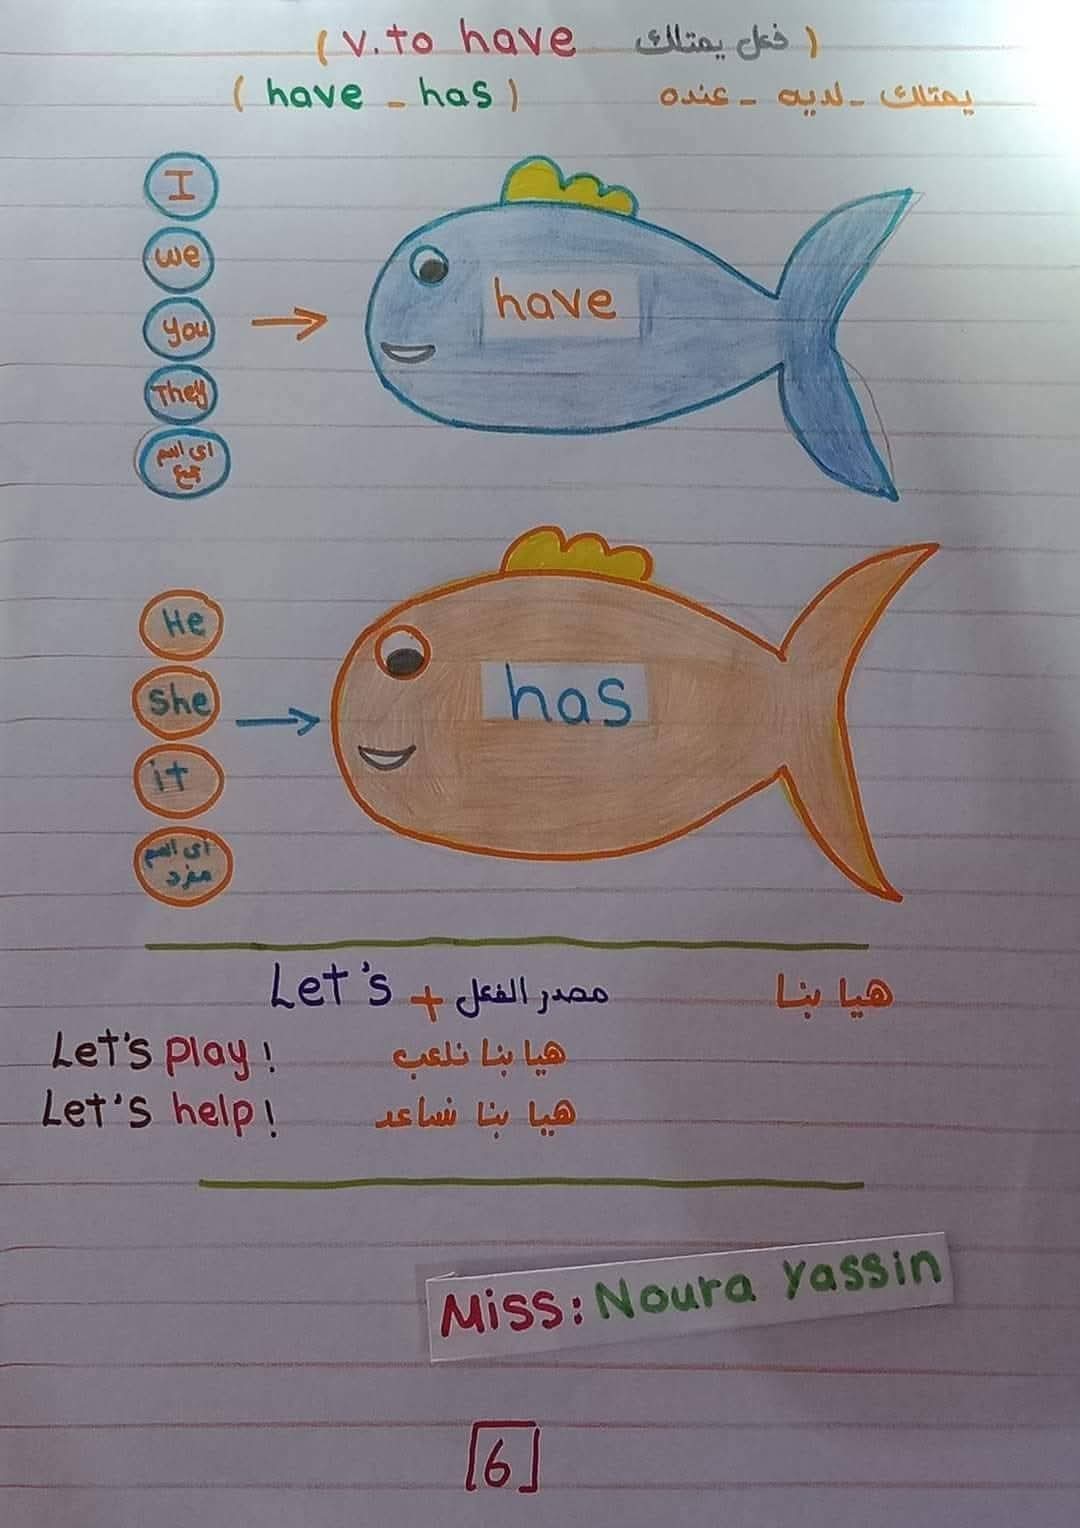 ( v. to have فعل يمتلك )
( have - has ) يمتلك - لديه - عنده
I
we
you
They
اى اسم
جمع
have
He
she
it
اى اسم
مفرد
has
Let's + مصدر الفعل هيا بنا
Let's play! هيا بنا نلعب
Let's help! هيا بنا نساعد
Miss: Noura Yassin
[6]